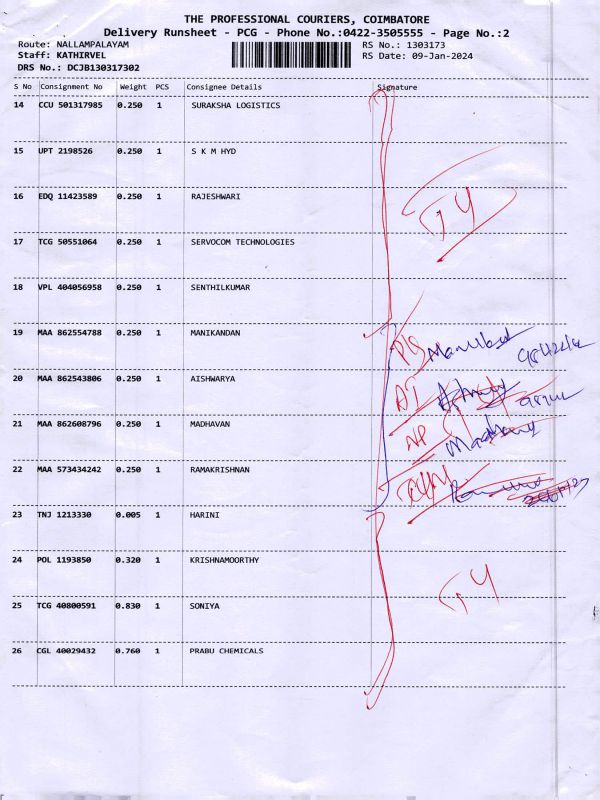 THE PROFESSIONAL COURIERS, COIMBATORE
Delivery Runsheet - PCG - Phone No.:0422-3505555 - Page No.:2
Route: NALLAMPALAYAM RS No.: 1303173
Staff: KATHIRVEL RS Date: 09-Jan-2024
DRS No.: DCJB130317302
S No Consignment No Weight PCS Consignee Details Signature
14 CCU 501317985 0.250 1 SURAKSHA LOGISTICS
15 UPT 2198526 0.250 1 S K M HYD
16 EDQ 11423589 0.250 1 RAJESHWARI
17 TCG 50551064 0.250 1 SERVOCOM TECHNOLOGIES
18 VPL 404056958 0.250 1 SENTHILKUMAR
19 MAA 862554788 0.250 1 MANIKANDAN
20 MAA 862543806 0.250 1 AISHWARYA
21 MAA 862608796 0.250 1 MADHAVAN
22 MAA 573434242 0.250 1 RAMAKRISHNAN
23 TNJ 1213330 0.005 1 HARINI
24 POL 1193850 0.320 1 KRISHNAMOORTHY
25 TCG 40800591 0.830 1 SONIYA
26 CGL 40029432 0.760 1 PRABU CHEMICALS